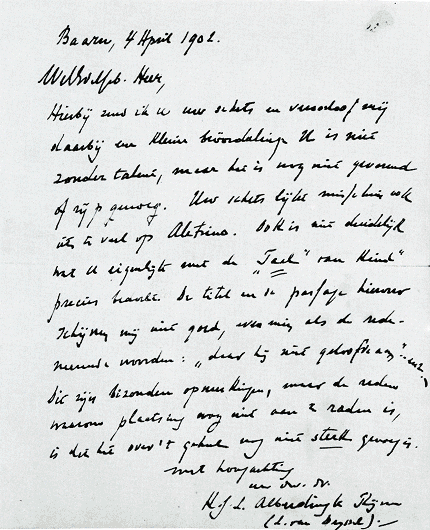 Baarn, 4 April 1902.
WelEdelgeb. Heer,
Hierbij zend ik U uw schets en veroorloof mij
daarbij een kleine beoordeeling. U is niet
zonder talent, maar het is nog niet gevormd
of rijp genoeg. Uw schets lijkt misschien ook
iets te veel op Aletrino. Ook is niet duidelijk
wat U eigenlijk met de „Taal" van Kind"
precies bedoelt. De titel en de passage hierover
schijnen mij niet goed, evenmin als de
woorden: „daar hij niet geloofde aan"
Dit zijn bizondere opmerkingen, maar de reden
waarom plaatsing nog niet aan te raden is,
is dat het over 't geheel nog niet sterk genoeg is.
met hoogachting
uw dw. dr.
K. J. L. Alberdingk Thijm
(L. van Deyssel).